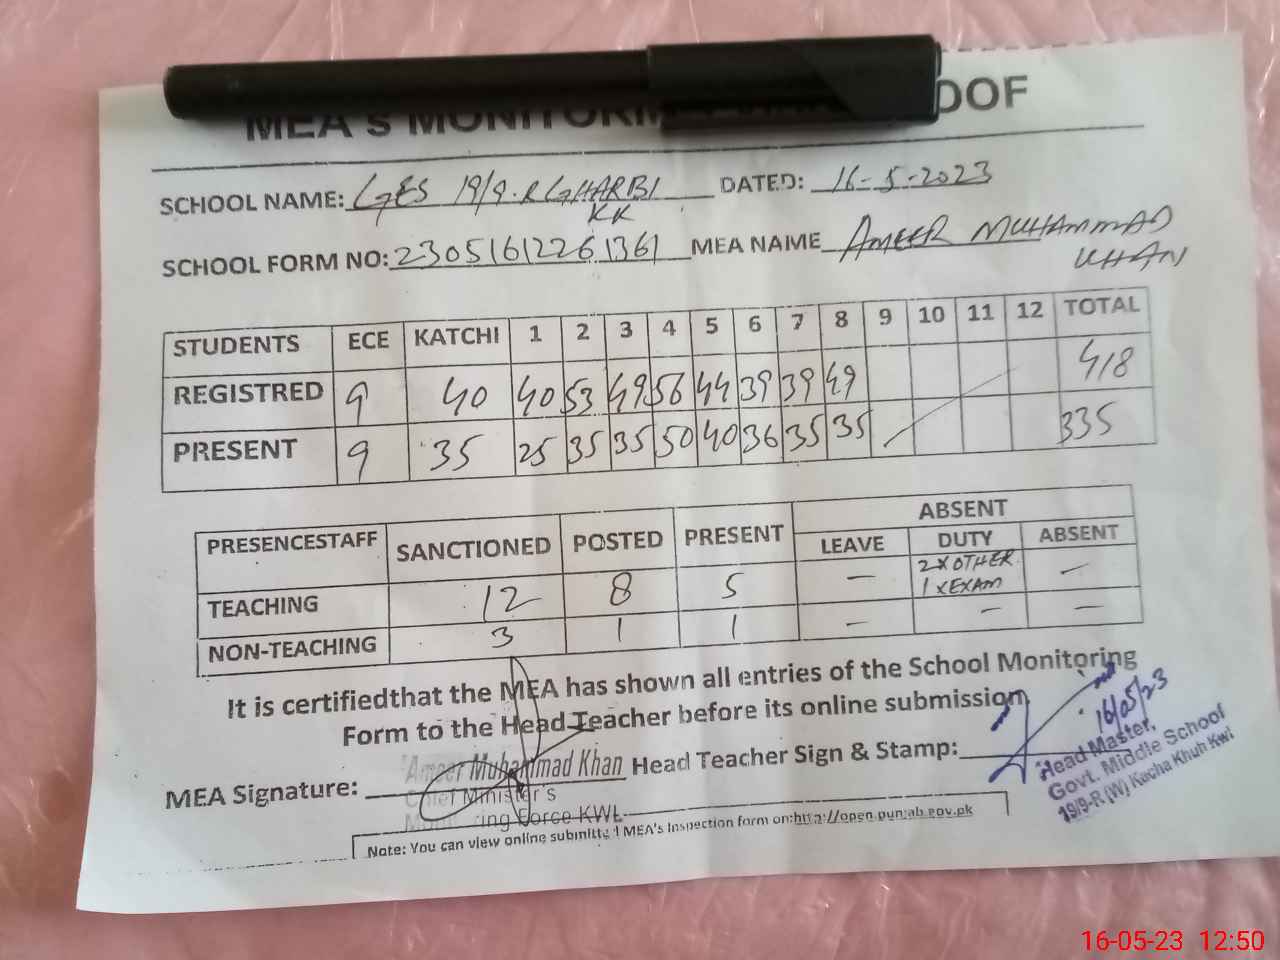 MEA's MONITORIN OOF
SCHOOL NAME: GES 19/9.R GHARBI KK DATED: 16-5-2023
SCHOOL FORM NO: 23051612261361 MEA NAME AMEER MUHAMMAD KHAN
STUDENTS ECE KATCHI 1 2 3 4 5 6 7 8 9 10 11 12 TOTAL
REGISTRED 9 40 40 53 49 56 44 39 39 49 418
PRESENT 9 35 25 35 35 50 40 36 35 35 335
PRESENCESTAFF SANCTIONED POSTED PRESENT ABSENT
LEAVE DUTY ABSENT
TEACHING 12 8 5 — 2 x OTHER 1 x EXAM —
NON-TEACHING 3 1 1 — — —
It is certifiedthat the MEA has shown all entries of the School Monitoring
Form to the Head Teacher before its online submission.
MEA Signature: Ameer Muhammad Khan Head Teacher Sign & Stamp:
Chief Minister's
Monitoring Force KWL
16/05/23
Head Master,
Govt. Middle School
19/9-R (W) Kacha Khuh Kwl
Note: You can view online submitted MEA's Inspection form on:http://open.punjab.gov.pk
16-05-23 12:50